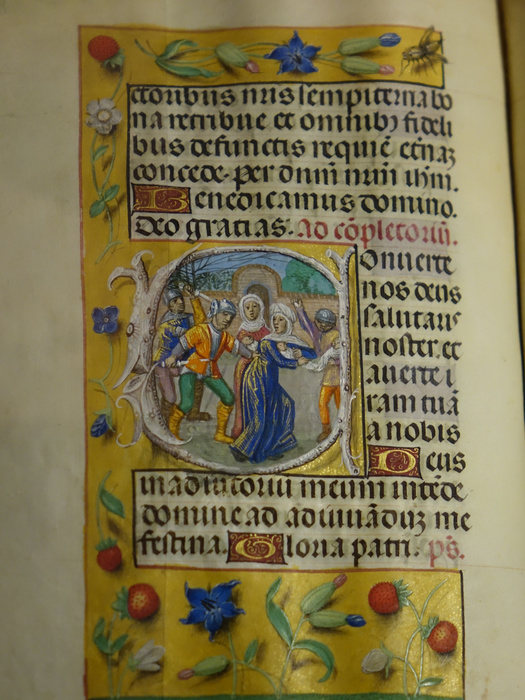 ctoribus nr̄is sempiterna bo
na retribue et omnibꝫ fideli
bus defunctis requiē etnāꝫ
concede. per dnm̄ nrm̄ ihm̄.
Benedicamus domino.
Deo gratias. ad cōpletoriū.
Onuerte
nos deus
salutaris
noster. et
auerte i
ram tuā
a nobis
Deus
in adiutoriū meum intēde
domine ad adiuuādūꝫ me
festina. Gloria patri. pš.